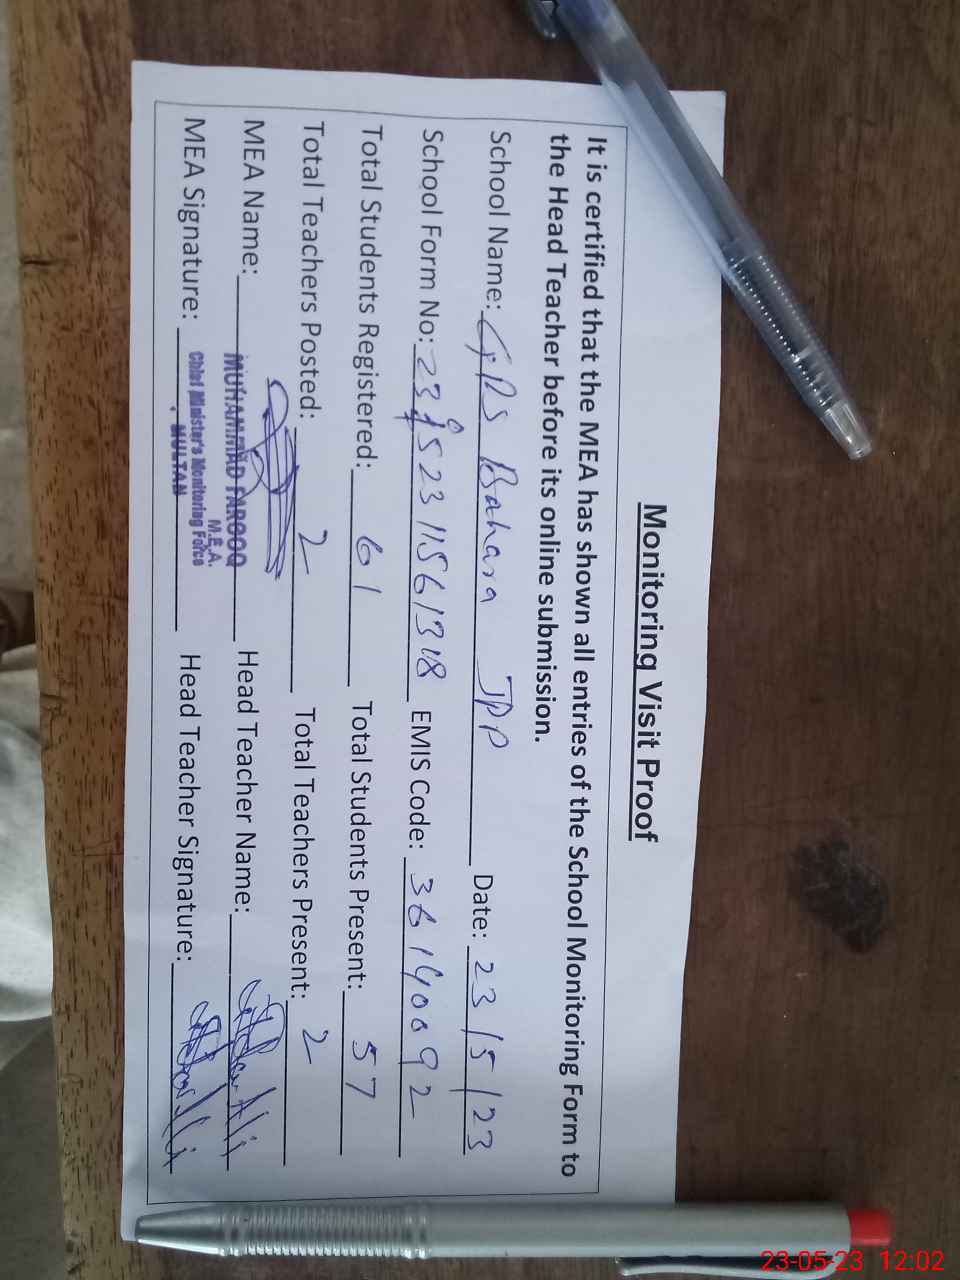 Monitoring Visit Proof
It is certified that the MEA has shown all entries of the School Monitoring Form to
the Head Teacher before its online submission.
School Name: GPS Bahara JPP Date: 23/5/23
School Form No: 2311561318 EMIS Code: 36140092
Total Students Registered: 61 Total Students Present: 57
Total Teachers Posted: 2 Total Teachers Present: 2
MEA Name: MUHAMMAD FAROOQ Head Teacher Name:
M.E.A.
MEA Signature: Chief Minister's Monitoring Force Head Teacher Signature:
MULTAN
23-05-23 12:02